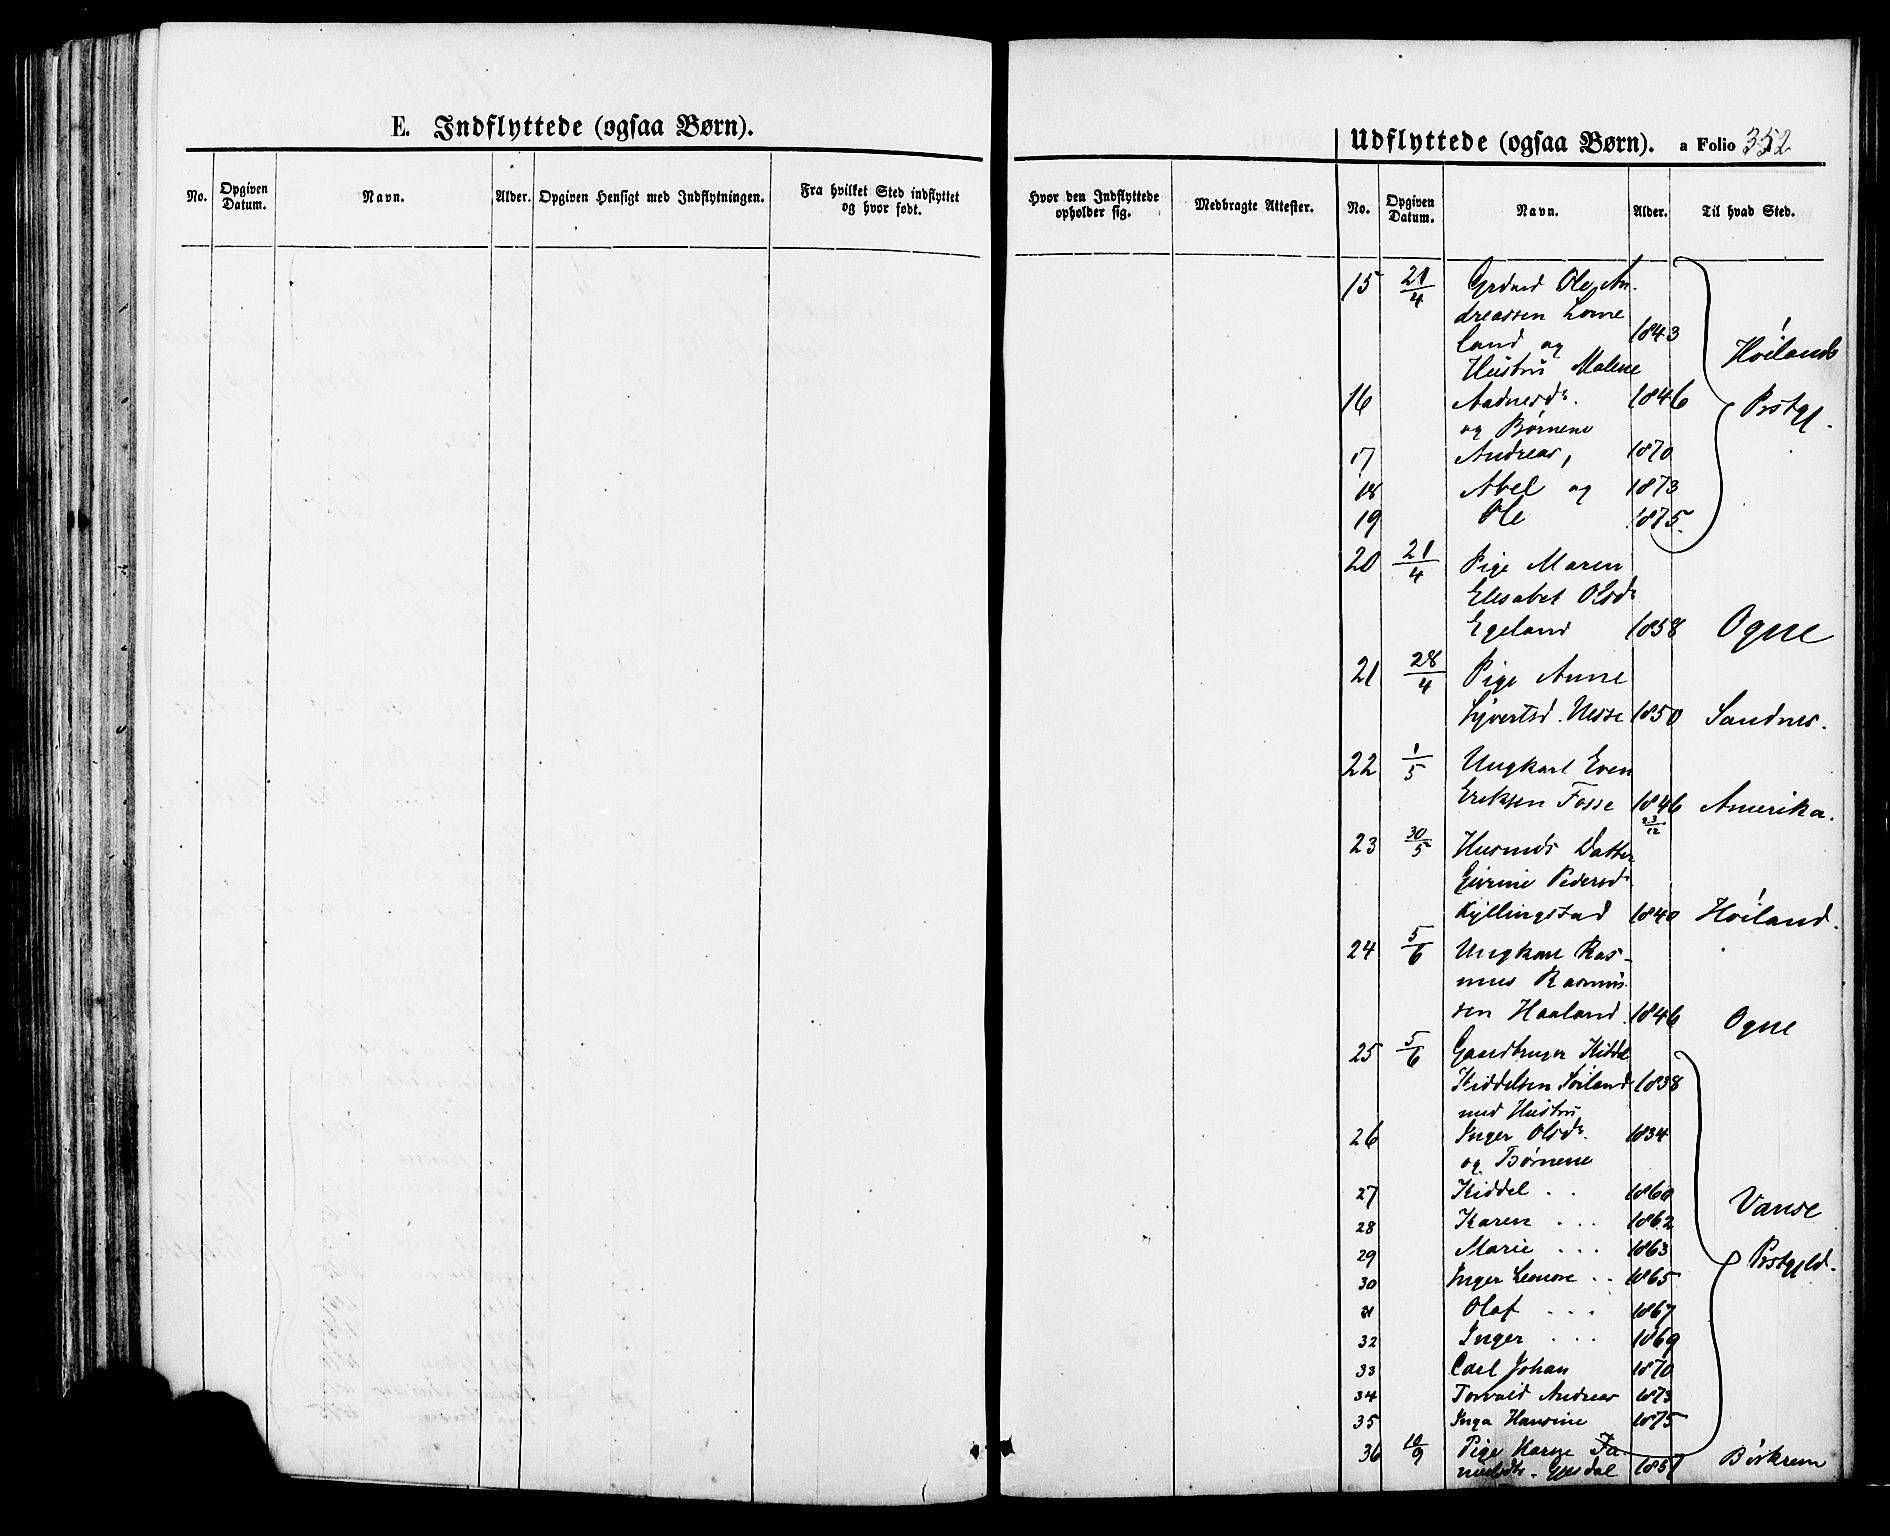 E. Indflyttede (ogsaa Børn).
No. Opgiven Datum. Navn. Alder. Opgiven Hensigt med Indflytningen. Fra hvilket Sted indflyttet og hvor født.
Hvor den Indflyttede opholder sig. Medbragte Attester.
Udflyttede (ogsaa Børn). a Folio 352
No. Opgiven Datum. Navn. Alder. Til hvad Sted.
15 21/4 Grdmd Ole An-
dreassen Lome
land og 1843 Høilands
Hustru Malene
16 Aadnesdr. 1846 Prstgj.
og Børnene
17 Andreas, 1870
18 Abel og 1873
19 Ole 1875.
20 21/4 Pige Maren
Elisabet Olsdr
Egeland 1858 Ogne
21 28/4 Pige Anne
Sjvertsd. Nesse 1850 Sandnes.
22 1/5 Ungkarl Even
Eriksen Fosse 1846 Amerika.
23/12
23 30/5 Husmds Datter
Pedersd
Kyllingstad 1840 Høiland.
24 5/6 Ungkarl Ras-
mus Rasmus
sen Haaland 1846 Ogne
25 5/6 Gaardbruger Kiddel
Kiddelsen Søiland 1838
med Hustru
26 Inger Olsdr. 1834
og Børnene
27 Kiddel . . 1860 Vanse
28 Karen . . . 1862
29 Marie . . . 1863 Prstgjeld.
30 Inger Leonore . . 1865
31 Olaf . . . 1867
32 Inger . . . 1869
33 Carl Johan 1870
34 Torvald Andreas 1873
35 Inga Hansine 1875
36 10/9 Pige Karen
1851 Birkrem